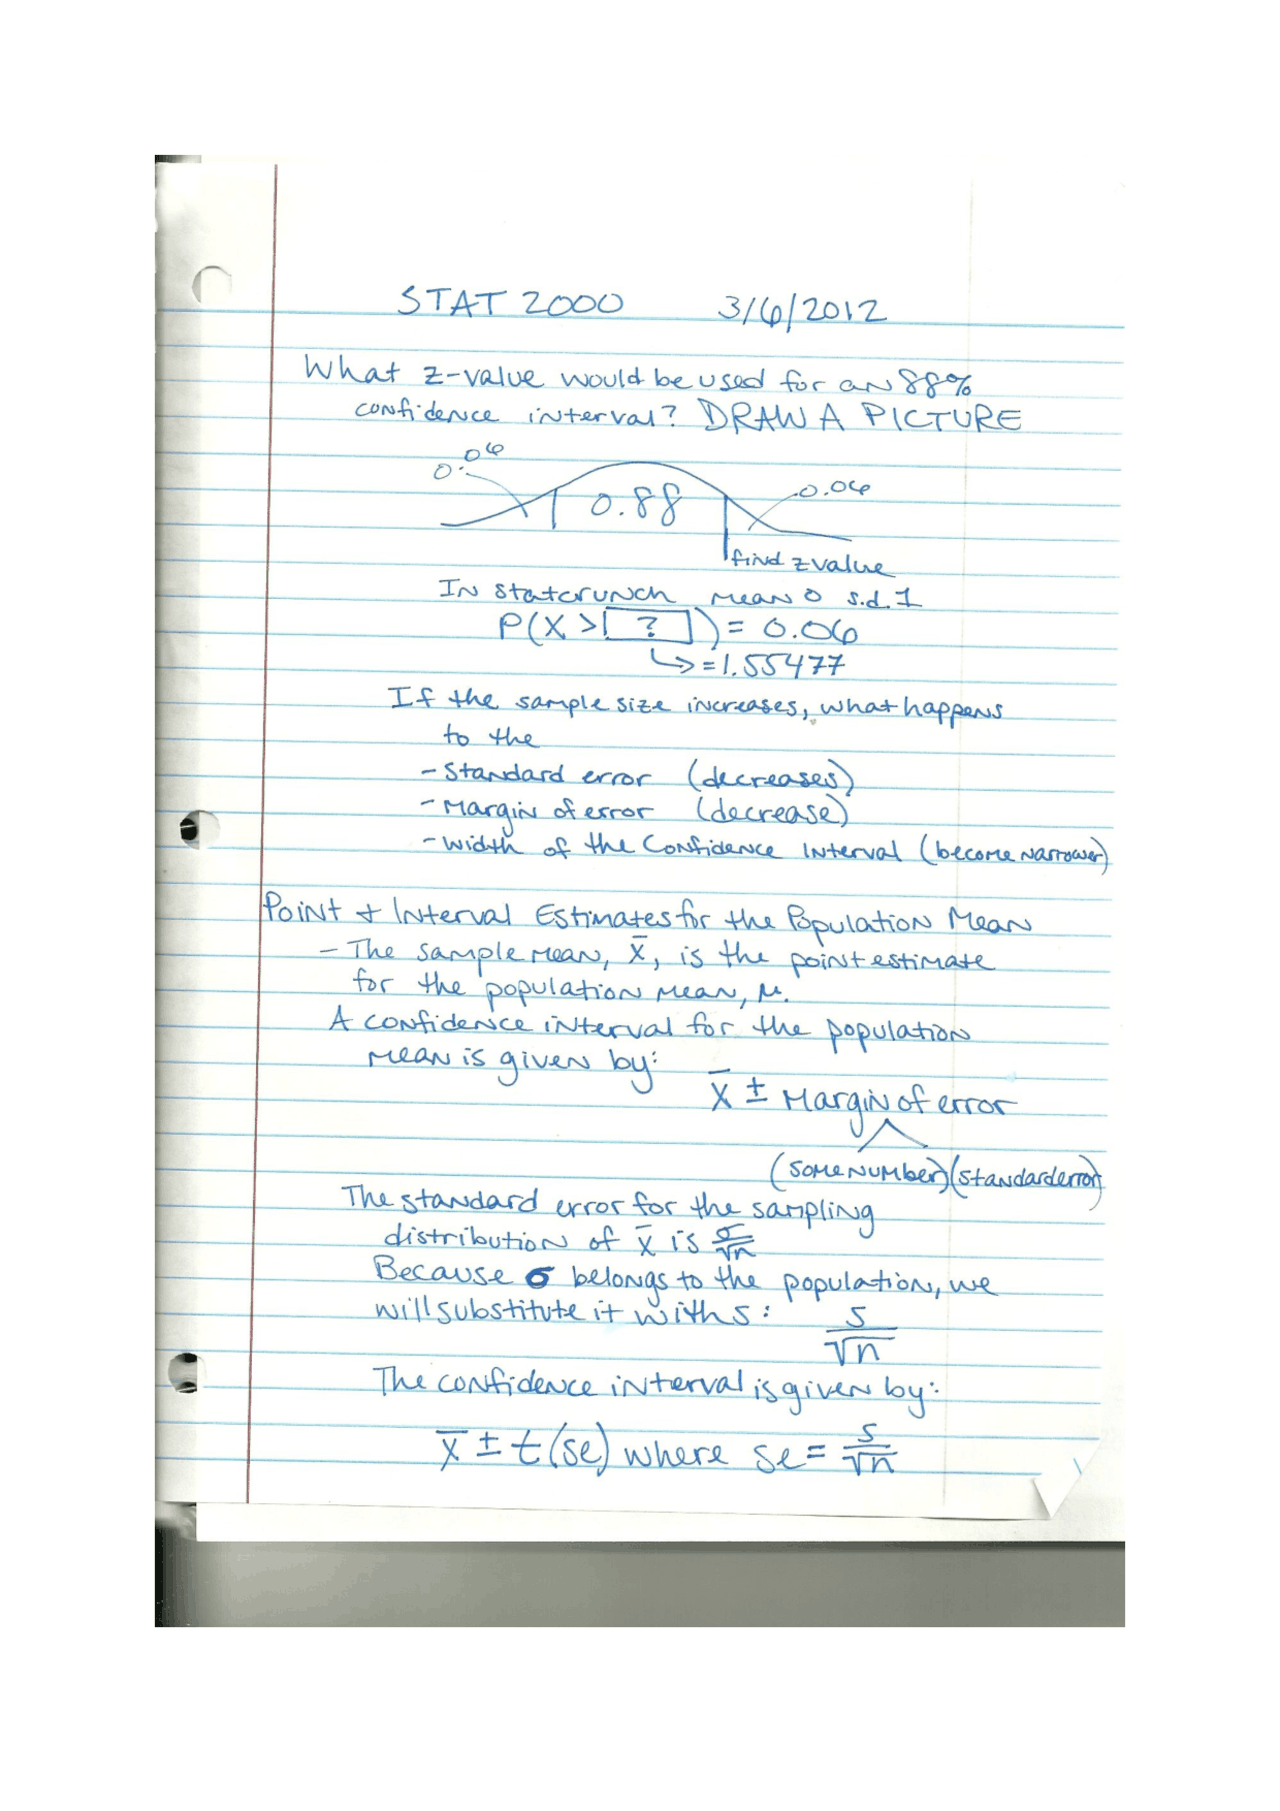 STAT 2000 3/6/2012
What z-value would be used for an 88%
confidence interval? DRAW A PICTURE
0.06
0.88
0.06
find z value
In statcrunch mean 0 s.d. 1
P(X > ?) = 0.06
↳ = 1.55477
If the sample size increases, what happens
to the
- Standard error (decreases)
- Margin of error (decrease)
- Width of the Confidence Interval (become narrower)
Point + Interval Estimates for the Population Mean
- The sample mean, x̄, is the point estimate
for the population mean, μ.
A confidence interval for the population
mean is given by:
x̄ ± Margin of error
(some number)(standard error)
The standard error for the sampling
distribution of x̄ is σ/√n
Because σ belongs to the population, we
will substitute it with s: s/√n
The confidence interval is given by:
x̄ ± t(se) where se = s/√n